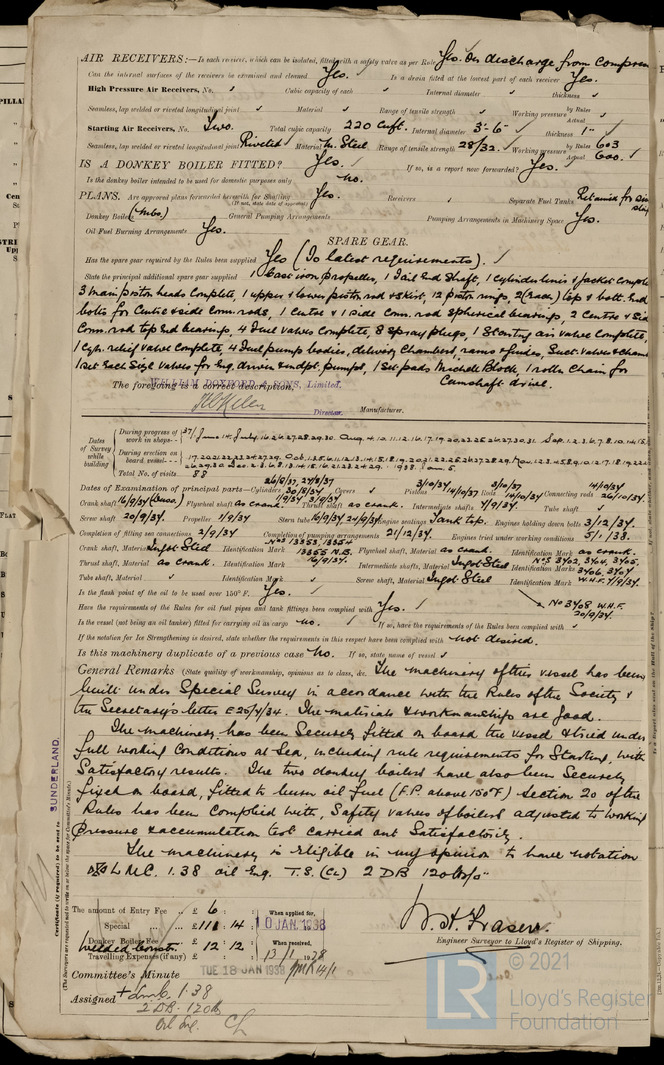 AIR RECEIVERS:—Is each receiver, which can be isolated, fitted with a safety valve as per Rule Yes. On discharge from
Can the internal surfaces of the receivers be examined and cleaned Yes. Is a drain fitted at the lowest part of each receiver Yes.
High Pressure Air Receivers, No. ✓ Cubic capacity of each ✓ Internal diameter ✓ thickness ✓
Seamless, lap welded or riveted longitudinal joint ✓ Material ✓ Range of tensile strength ✓ Working pressure by Rules Actual
Starting Air Receivers, No. Two. Total cubic capacity 220 cu ft. Internal diameter 3'-6" thickness 1"
Seamless, lap welded or riveted longitudinal joint Riveted Material M. Steel Range of tensile strength 28/32. Working pressure by Rules 603 Actual 600.
IS A DONKEY BOILER FITTED? Yes. If so, is a report now forwarded? Yes.
Is the donkey boiler intended to be used for domestic purposes only No.
PLANS. Are approved plans forwarded herewith for Shafting Yes. Receivers ✓ Separate Fuel Tanks
(If not, state date of approval)
Donkey Boilers General Pumping Arrangements Pumping Arrangements in Machinery Space Yes.
Oil Fuel Burning Arrangements Yes.
SPARE GEAR.
Has the spare gear required by the Rules been supplied Yes (To latest requirements).
State the principal additional spare gear supplied 1 Cast iron propeller, 1 Tail End Shaft, 1 Cylinder liner & Jacket complete
3 main piston heads complete, 1 upper & lower piston rod & skirt, 12 piston rings, 2 (each) top & bott. End
bolts for Centre & side Conn. rods, 1 Centre & 1 side Conn. rod spherical bearings, 2 Centre & Side
Conn. rod top End bearings, 4 Fuel valves complete, 8 spray plugs, 1 Starting air valve complete,
1 Cyl. relief valve complete, 4 Fuel pump bodies, delivery Chambers, rams & guides, Suct. valves &
1 set Each Size Valves for Eng. driven & indpt. pumps, 1 set pads Michell Block, 1 roller Chain for
Camshaft drive.
The foregoing is a correct description,
WILLIAM DOXFORD & SONS, Limited.
Director. Manufacturer.
Dates of Survey while building
During progress of work in shops--
During erection on board vessel---
Total No. of visits 88
Dates of Examination of principal parts—Cylinders 26/8/37, 27/8/37 30/8/37 Covers ✓ Pistons 3/10/37 14/10/37 Rods 3/10/37 14/10/37 Connecting rods 14/10/37 26/10/37.
Crank shaft 16/9/37 Flywheel shaft as crank. Thrust shaft as crank. Intermediate shafts 7/9/37. Tube shaft ✓
Screw shaft 20/9/37. Propeller 1/9/37 Stern tube 16/9/37 24/9/37 Engine seatings Tank top. Engines holding down bolts 3/12/37.
Completion of fitting sea connections 2/9/37 Completion of pumping arrangements 21/12/37. Engines tried under working conditions 5/1/38.
Crank shaft, Material Ingot Steel Identification Mark Nos 13353, 13354 13355 N.B. 16/9/37. Flywheel shaft, Material as crank. Identification Mark as crank.
Thrust shaft, Material as crank. Identification Mark Intermediate shafts, Material Ingot Steel Identification Marks Nos 3402, 3404, 3405, 3406, 3407 W.H.F. 7/9/37.
Tube shaft, Material ✓ Identification Mark ✓ Screw shaft, Material Ingot Steel Identification Mark No 3408 W.H.F. 20/9/37.
Is the flash point of the oil to be used over 150° F. Yes.
Have the requirements of the Rules for oil fuel pipes and tank fittings been complied with Yes.
Is the vessel (not being an oil tanker) fitted for carrying oil as cargo No. If so, have the requirements of the Rules been complied with ✓
If the notation for Ice Strengthening is desired, state whether the requirements in this respect have been complied with Not desired.
Is this machinery duplicate of a previous case No. If so, state name of vessel ✓
General Remarks (State quality of workmanship, opinions as to class, &c. The machinery of this vessel has been
built under Special Survey in accordance with the Rules of the Society &
the Secretary's letter E 25/4/37. The materials & workmanship are good.
The machinery has been Securely fitted on board the vessel & tried under
full working Conditions at Sea, including rule requirements for Starting, with
Satisfactory results. The two donkey boilers have also been Securely
fixed on board, fitted to burn oil fuel (F.P. above 150°F) Section 20 of the
Rules has been Complied with, Safety valves of boilers adjusted to working
pressure & accumulation test carried out Satisfactorily.
The machinery is Eligible in my opinion to have notation
L.M.C. 1.38 oil Eng. T.S. (CL) 2 DB 120 lb/□"
SUNDERLAND.
Certificate (if required) to be sent to
(The Surveyors are requested not to write on or below the space for Committee's Minute.)
The amount of Entry Fee .. £ 6 : When applied for,
Special ... £ 111 : 14 : 10 JAN. 1938
Donkey Boiler Fee ... £ 12 : 12 : When received,
Travelling Expenses (if any) £ : : 13/1 1938
W. H. Fraser.
Engineer Surveyor to Lloyd's Register of Shipping.
Committee's Minute TUE 18 JAN 1938
Assigned + Lmc. 1.38
2 DB. 120 lb
Oil Eng. CL
© 2021
Lloyd's Register
Foundation